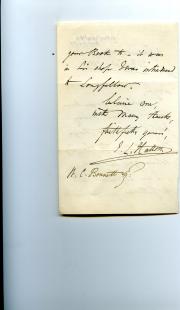 your Book to - it was
in his shop I was introduced
to Longfellow.
Believe me,
with many thanks,
faithfully yours,
W. C. Bennett Esq.